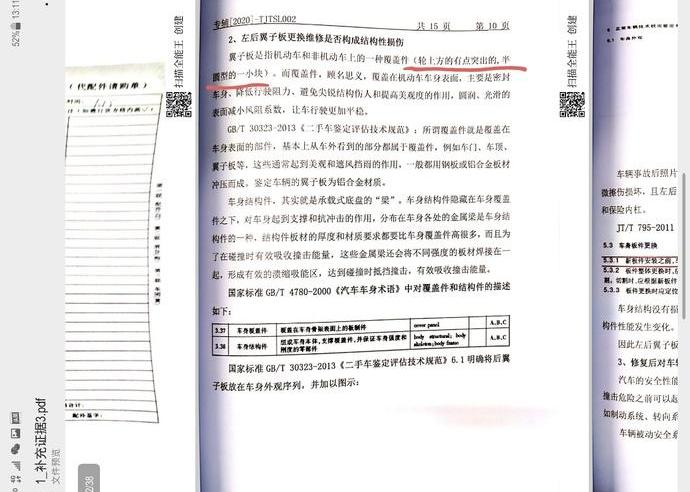 52%
13:11
4G
1_补充证据3.pdf
文件预览
2/38
（代配件请购单）
扫描全能王 创建
专辅[2020]-TJTSL002
共 15 页 第 10 页
2、左后翼子板更换维修是否构成结构性损伤
翼子板是指机动车和非机动车上的一种覆盖件（轮上方的有点突出的,半
圆型的一小块）。而覆盖件，顾名思义，覆盖在机动车车身表面，主要是密封
车身、降低行驶阻力、避免尖锐结构伤人和提高美观度的作用，圆润、光滑的
表面减小风阻系数，让车行驶更加平稳。
GB/T 30323-2013《二手车鉴定评估技术规范》：所谓覆盖件就是覆盖在
车身表面的部件，基本上从车外看到的部分都属于覆盖件，例如车门、车顶、
翼子板等，这些通常起到美观和遮风挡雨的作用，一般都用钢板或铝合金板材
冲压而成。鉴定车辆的翼子板为铝合金材质。
车身结构件，其实就是承载式底盘的“梁”。车身结构件隐藏在车身覆盖
件之下，对车身起到支撑和抗冲击的作用，分布在车身各处的金属梁是车身结
构件的一种，结构件板材的厚度和材质要求都要比车身覆盖件高很多，而且为
了在碰撞时有效吸收撞击能量，这些金属梁还会将不同强度的板材焊接在一
起，形成有效的溃缩吸能区，达到碰撞时抵挡撞击，有效吸收撞击能量。
国家标准 GB/T 4780-2000《汽车车身术语》中对覆盖件和结构件的描述
如下：
3.37 车身覆盖件 覆盖在车身骨架表面上的板制件 cover panel A,B,C
3.38 车身结构件 组成车身本体,支撑覆盖件,并保证车身强度和刚度的零部件 body structural; body skeleton; body frame A,B,C
国家标准 GB/T 30323-2013《二手车鉴定评估技术规范》6.1 明确将后翼
子板放在车身外观序列，并加以图示：
扫描全能王 创建
车辆事故后照片
微擦伤损坏，且左后
和保险内杠。
JT/T 795-2011
5.3 车身板件更换
5.3.1 新板件安装之前，
5.3.2 板件整体更换时,
5.3.3 板件更换时应定位
车身结构没有损
构件性能发生变化。
因此左后翼子板
3、修复后对车
汽车的安全性能
撞击危险之前可以起
如制动系统、转向系
车辆被动安全系